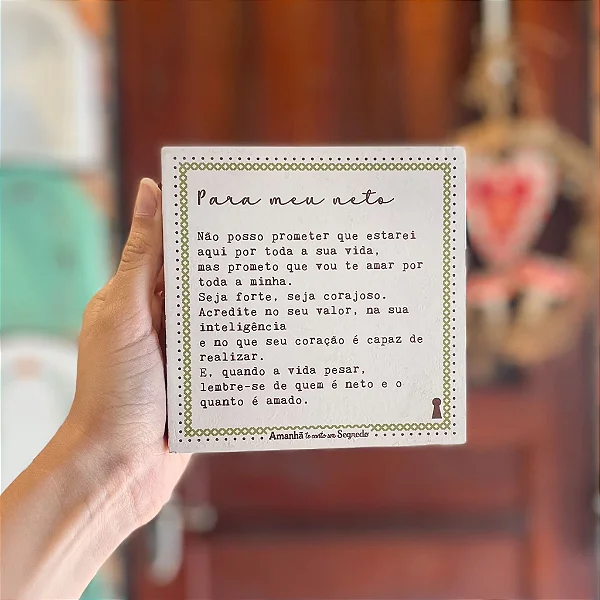 Para meu neto
Não posso prometer que estarei
aqui por toda a sua vida,
mas prometo que vou te amar por
toda a minha.
Seja forte, seja corajoso.
Acredite no seu valor, na sua
inteligência
e no que seu coração é capaz de
realizar.
E, quando a vida pesar,
lembre-se de quem é neto e o
quanto é amado.
Amanhã te conto um Segredo